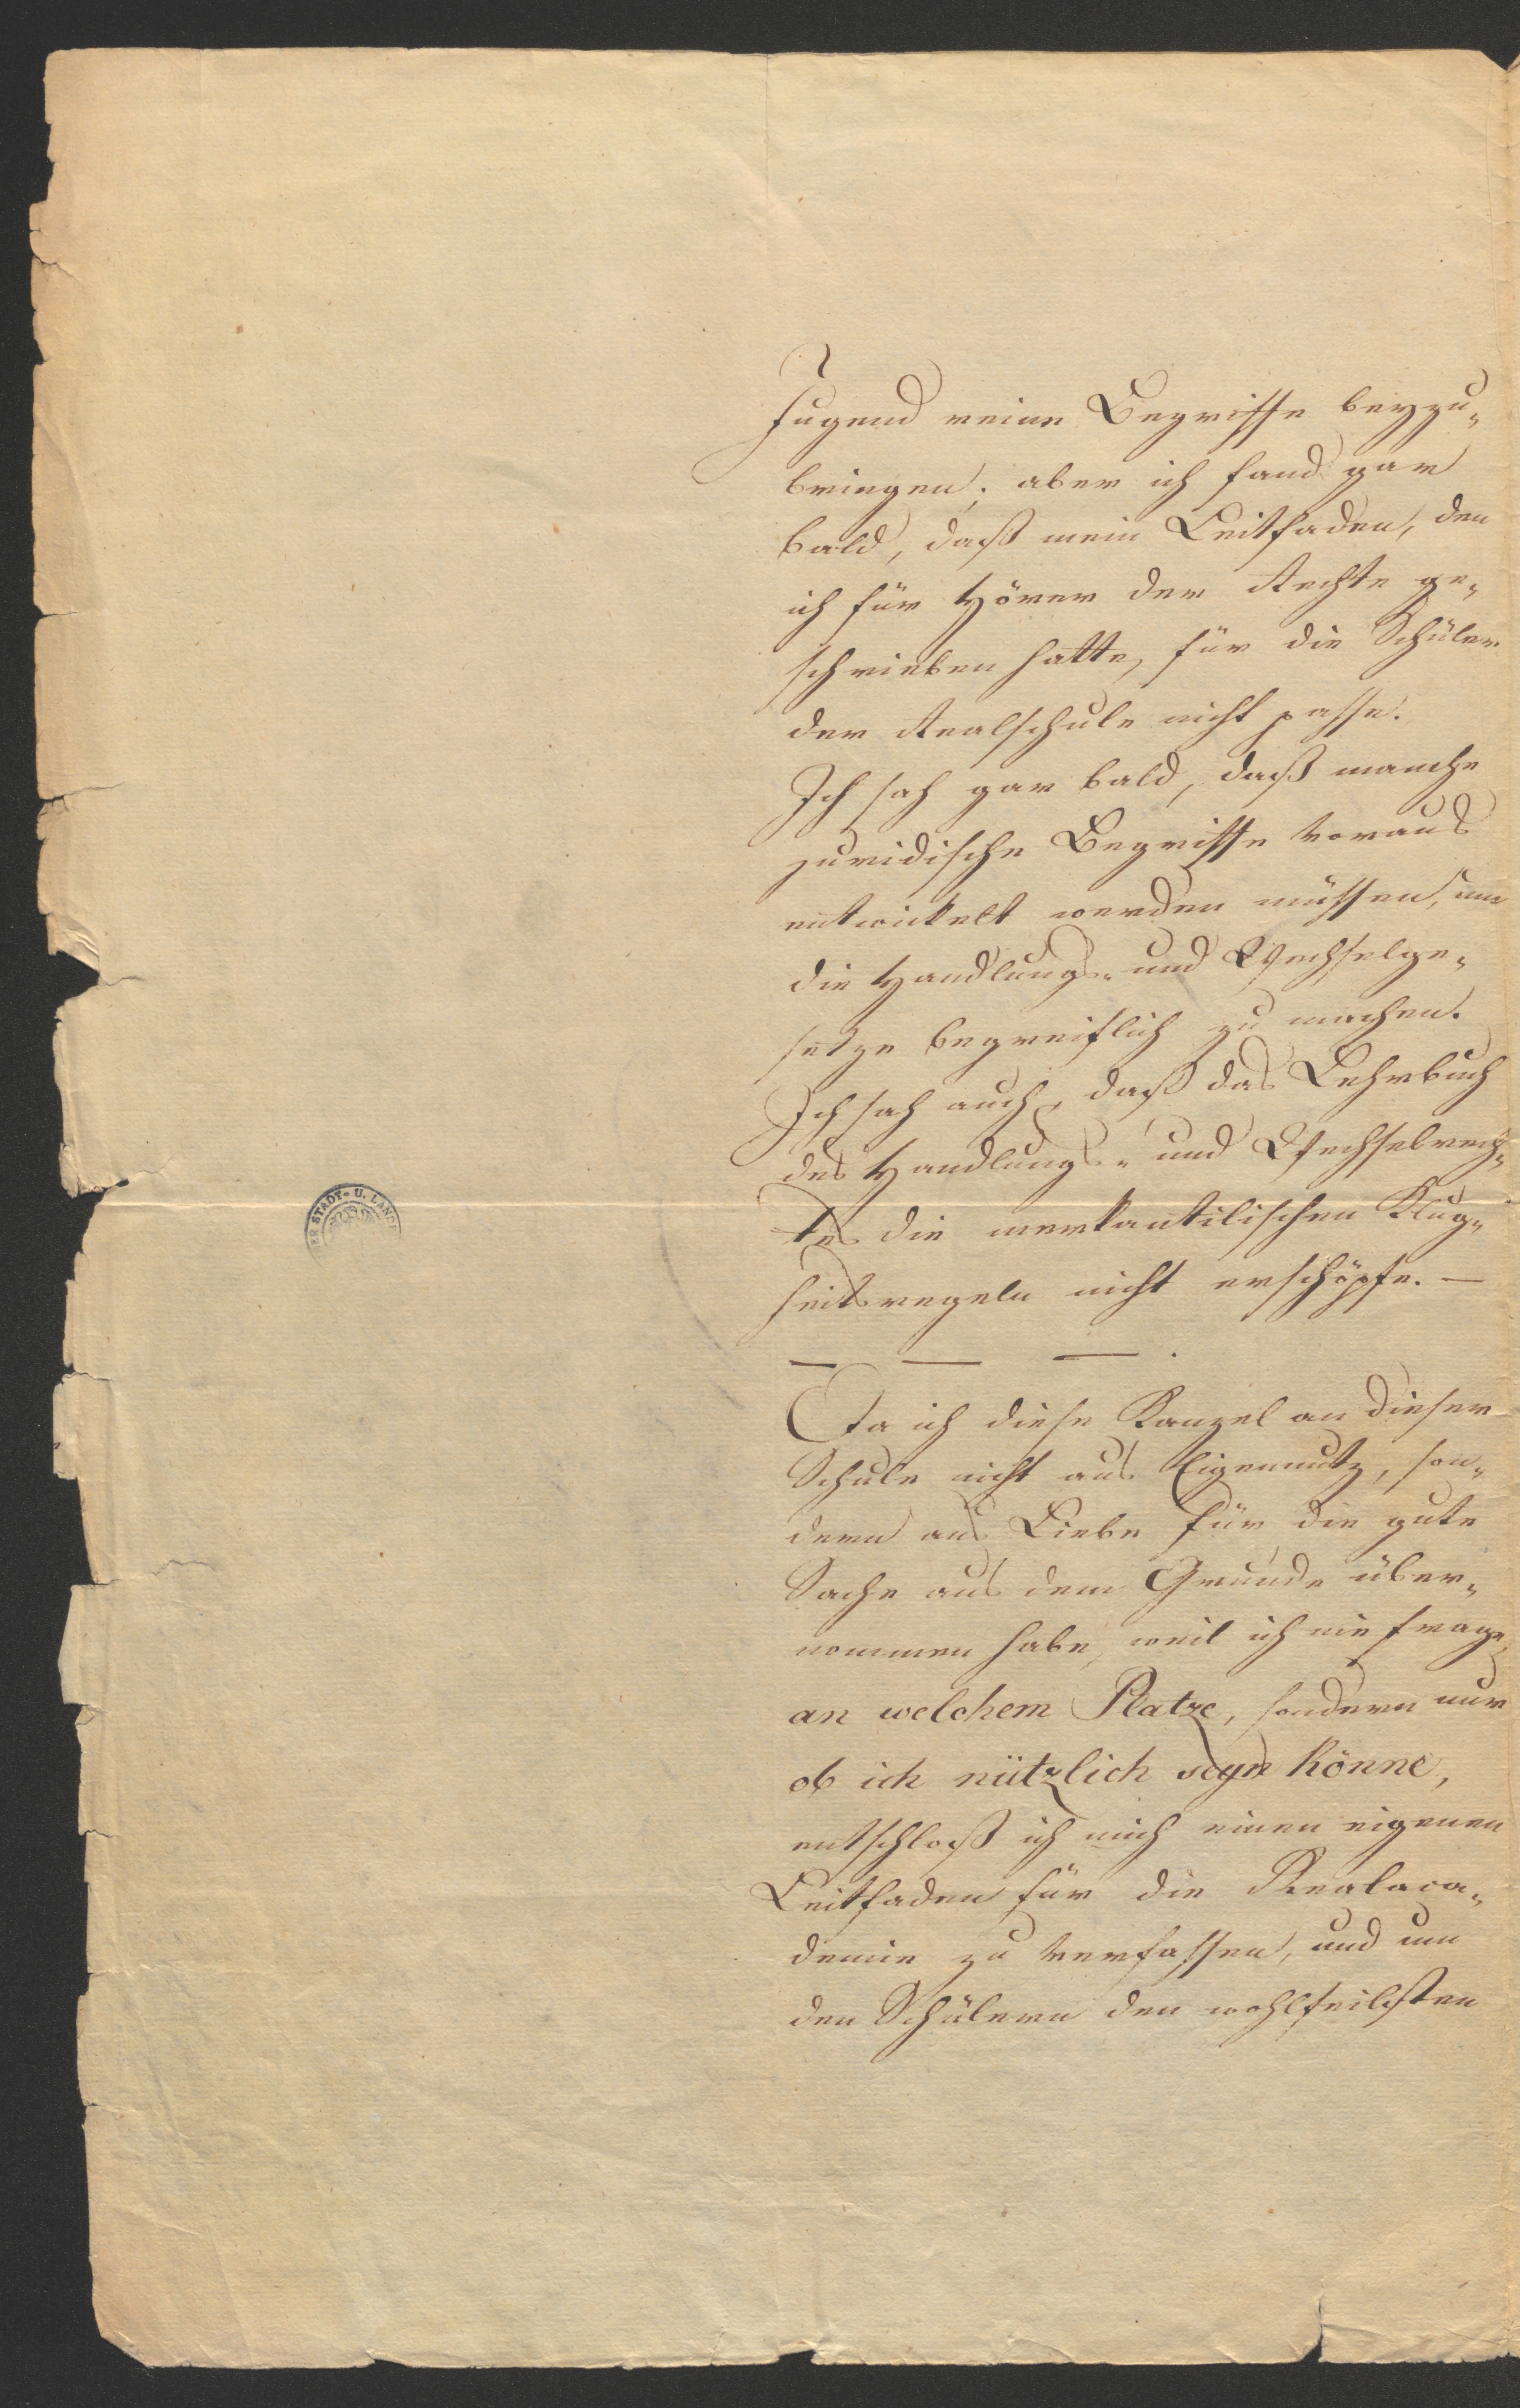 Jugend reine Begriffe beyzu-
bringen; aber ich fand gar
bald, daß mein Leitfaden, den
ich für Hörer der Rechte ge-
schrieben hatte, für die Schüler
der Realschule nicht passe.
Ich sah gar bald, daß manche
juridische Begriffe voraus
entwickelt werden müssen, um
die Handlungs- und Wechselge-
setze begreiflich zu machen.
Ich sah auch, daß das Lehrbuch
des Handlungs- und Wechselrech-
tes die merkantilischen Klug-
heitsregeln nicht erschöpfe. —
— — — .
Da ich diese Kanzel an dieser
Schule nicht aus Eigennutz, son-
dern aus Liebe für die gute
Sache aus dem Grunde über-
nommen habe, weil ich nie frage,
an welchem Platze, sondern nur
ob ich nützlich seyn könne,
entschloß ich mich einen eigenen
Leitfaden für die Realaca-
demie zu verfassen, und um
den Schülern den wohlfeilsten
ER STADT- U. LAND